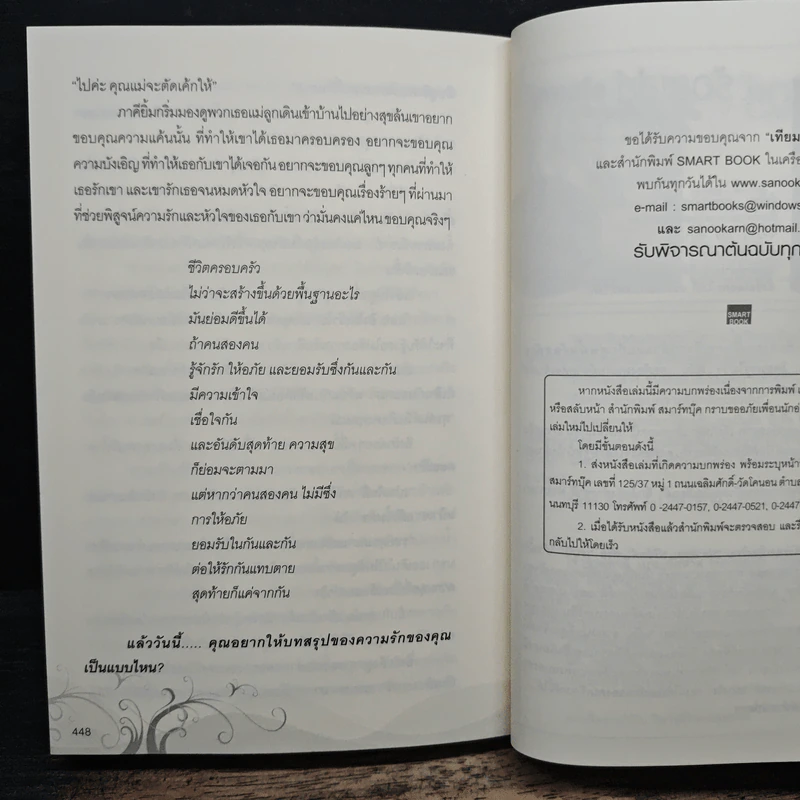 "ไปค่ะ คุณแม่จะตัดเค้กให้"
ภาคียิ้มกริ่มมองดูพวกเธอแม่ลูกเดินเข้าบ้านไปอย่างสุขล้นเขาอยาก
ขอบคุณความแค้นนั้น ที่ทำให้เขาได้เธอมาครอบครอง อยากจะขอบคุณ
ความบังเอิญ ที่ทำให้เธอกับเขาได้เจอกัน อยากจะขอบคุณลูกๆ ทุกคนที่ทำให้
เธอรักเขา และเขารักเธอจนหมดหัวใจ อยากจะขอบคุณเรื่องร้ายๆ ที่ผ่านมา
ที่ช่วยพิสูจน์ความรักและหัวใจของเธอกับเขา ว่ามั่นคงแค่ไหน ขอบคุณจริงๆ
ชีวิตครอบครัว
ไม่ว่าจะสร้างขึ้นด้วยพื้นฐานอะไร
มันย่อมดีขึ้นได้
ถ้าคนสองคน
รู้จักรัก ให้อภัย และยอมรับซึ่งกันและกัน
มีความเข้าใจ
เชื่อใจกัน
และอันดับสุดท้าย ความสุข
ก็ย่อมจะตามมา
แต่หากว่าคนสองคน ไม่มีซึ่ง
การให้อภัย
ยอมรับในกันและกัน
ต่อให้รักกันแทบตาย
สุดท้ายก็แค่จากกัน
แล้ววันนี้..... คุณอยากให้บทสรุปของความรักของคุณ
เป็นแบบไหน?
448
ขอได้รับความขอบคุณจาก "เทียม
และสำนักพิมพ์ SMART BOOK ในเครือ
พบกันทุกวันได้ใน www.sanook
e-mail : smartbooks@windows
และ sanookarn@hotmail.
รับพิจารณาต้นฉบับทุก
SMART
BOOK
หากหนังสือเล่มนี้มีความบกพร่องเนื่องจากการพิมพ์
หรือสลับหน้า สำนักพิมพ์ สมาร์ทบุ๊ค กราบขออภัยเพื่อนนักอ่
เล่มใหม่ไปเปลี่ยนให้
โดยมีขั้นตอนดังนี้
1. ส่งหนังสือเล่มที่เกิดความบกพร่อง พร้อมระบุหน้า
สมาร์ทบุ๊ค เลขที่ 125/37 หมู่ 1 ถนนเฉลิมศักดิ์-วัดโคนอน ตำบล
นนทบุรี 11130 โทรศัพท์ 0 -2447-0157, 0-2447-0521, 0-2447
2. เมื่อได้รับหนังสือแล้วสำนักพิมพ์จะตรวจสอบ และรี
กลับไปให้โดยเร็ว